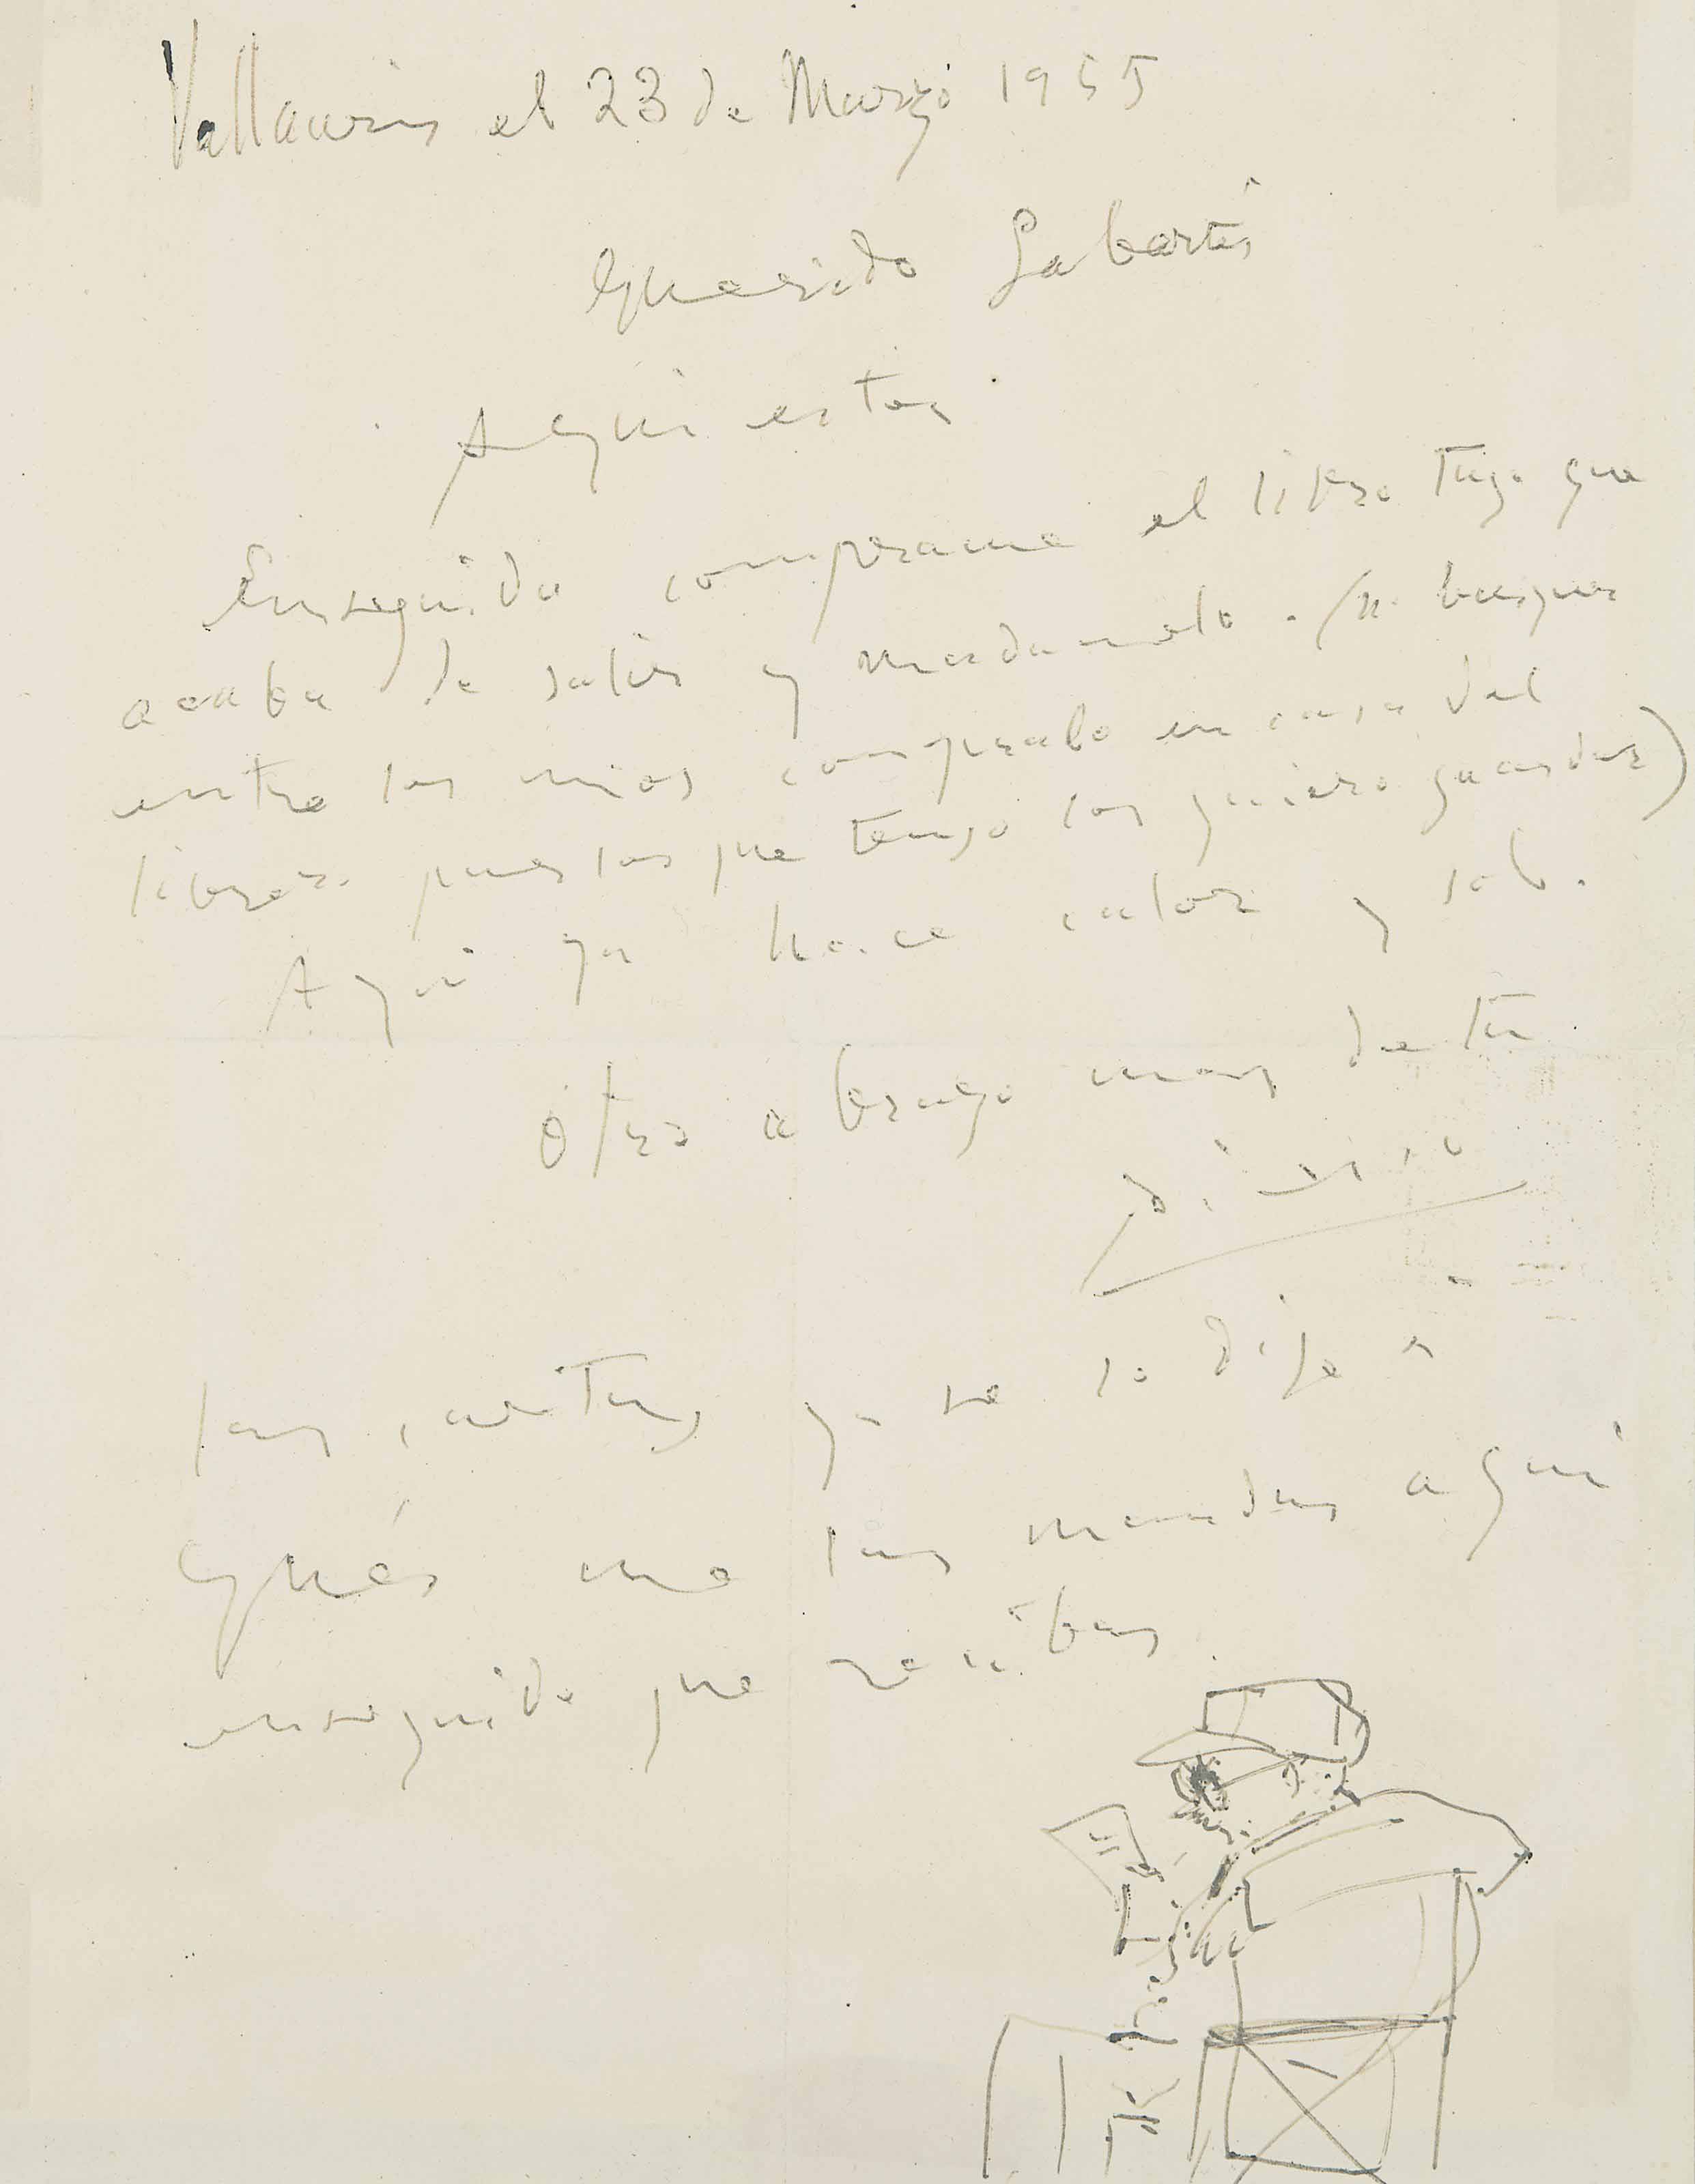 Vallauris el 23 de Marzo 1955
Querido Sabartés
Aqui estoy
Enseguida comprame el libro tuyo que
acaba de salir y mandamelo. (no busques
entre los mios compralo en casa del
librero pues los que tengo los quiero guardar)
Aqui ya hace calor y sol.
Otro abrazo mas de tu
Picasso
las cartas ya se lo dije a
Inés me las mandas aqui
enseguida que recibas